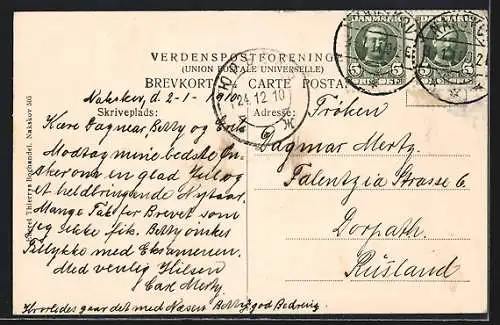 DANMARK DANMARK
VERDENSPOSTFORENINGEN
(UNION POSTALE UNIVERSELLE)
BREVKORT — CARTE POSTALE
Nakskov, d. 2-1-1910
24.12.10
Skriveplads:
Adresse:
Kære Dagmar, Betty og
Modtag mine bedste Øn-
sker om en glad Jul og
et heldbringende Nytaar.
Mange Tak for Brevet som
jeg ikke fik. Betty ønskes
Tillykke med Eksamenen.
Med venlig Hilsen
Carl Mertz.
Hvorledes gaar det med Næsen Betty? god Bedring
Fröken
Dagmar Mertz.
Falentzia Strasse 6.
Dorpath.
Rüsland
Thierrys Boghandel. Nakskov